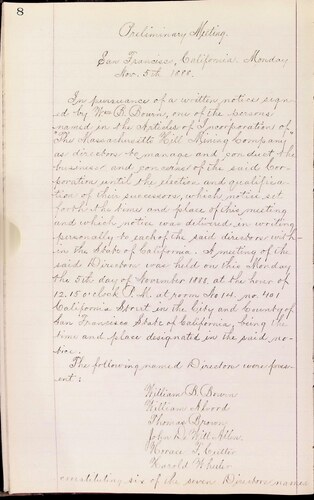 8
Preliminary Meeting.
San Francisco, California. Monday
Nov. 5th 1888.
In pursuance of a written notice sign-
ed by Wm B. Bourn, one of the persons
named in the Articles of Incorporation of
The Massachusetts Hill Mining Company
as directors to manage and conduct the
business and concerns of the said Cor-
poration until the election and qualifica-
tion of their successors, which notice set
forth the time and place of this meeting
and which notice was delivered in writing
personally to each of the said directors with-
in the State of California. A meeting of the
said Directors was held on this Monday
the 5th day of November 1888 at the hour of
12.15 o'clock P.M. at room No 14. no 401
California Street in the City and County of
San Francisco State of California, being the
time and place designated in the said no-
tice.
The following named Directors were pres-
ent:
William B. Bourn
William Alvord
Thomas Brown
John
Horace L.
Harold Wheeler
constituting six of the seven Directors named